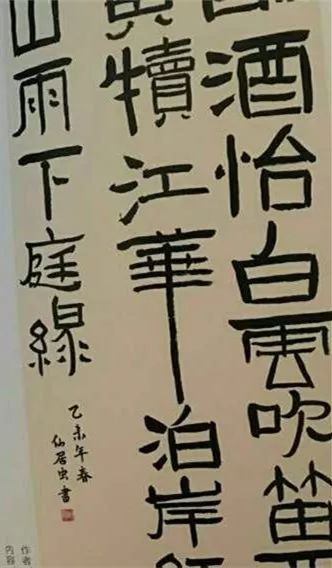 酒怡白雲吹笛
犢江華泊岸
山雨下庭綠
乙未年春
仙居虫書
作者
内容